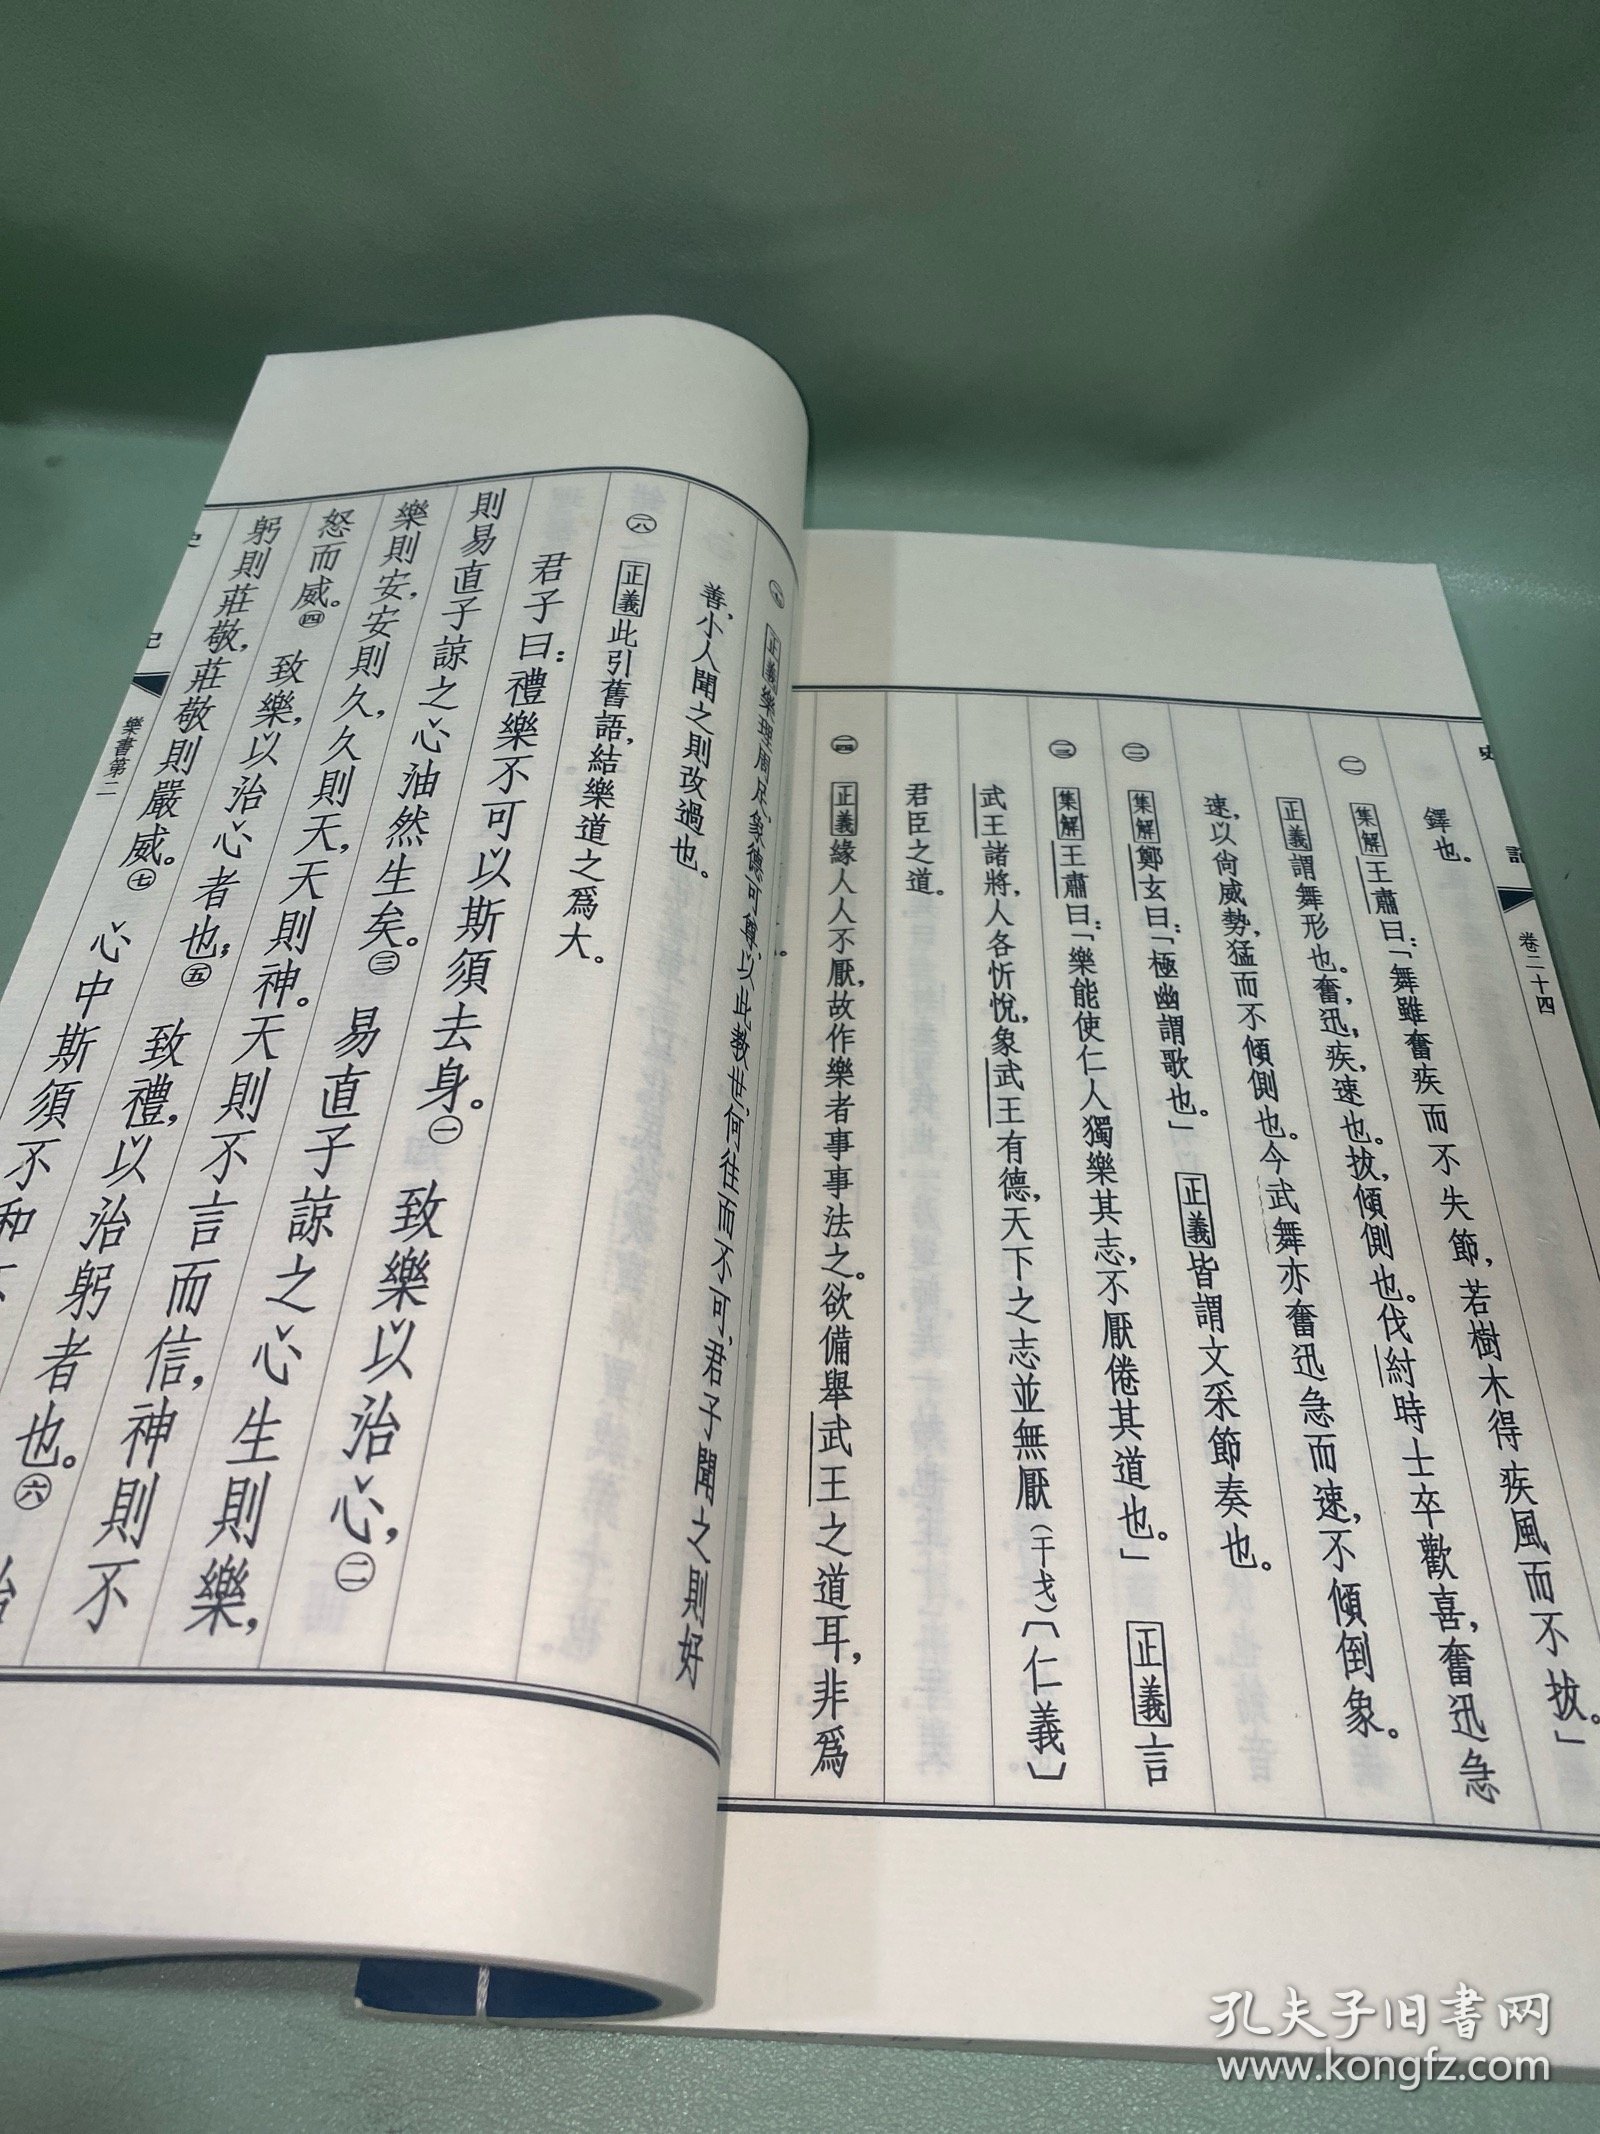 史記 卷二十四
鐸也。
㈡ 集解 王肅曰:「舞雖奮疾而不失節,若樹木得疾風而不拔。」
正義 謂舞形也。奮,迅;疾,速也。拔,傾側也。伐紂時士卒歡喜,奮迅急
速,以尚威勢,猛而不傾側也。今武舞亦奮迅急而速,不傾倒象。
集解 鄭玄曰:「極幽謂歌也。」 正義 皆謂文采節奏也。 正義 言
集解 王肅曰:「樂能使仁人獨樂其志,不厭倦其道也。」
武王諸將,人各忻悅,象武王有德,天下之志並無厭(干戈)〔仁義〕
君臣之道。
正義 緣人人不厭,故作樂者事事法之。欲備舉武王之道耳,非爲
正義 樂理周足,象德可尊,以此教世,何往而不可,君子聞之則好
善,小人聞之則改過也。
正義 此引舊語,結樂道之爲大。
君子曰:禮樂不可以斯須去身。㈠ 致樂以治心,㈡
則易直子諒之心油然生矣。㈢ 易直子諒之心生則樂,
樂則安,安則久,久則天,天則神。天則不言而信,神則不
怒而威。㈣ 致樂,以治心者也;㈤ 致禮,以治躬者也。㈥
躬則莊敬,莊敬則嚴威。㈦ 心中斯須不和
樂書第二
孔夫子旧书网
www.kongfz.com